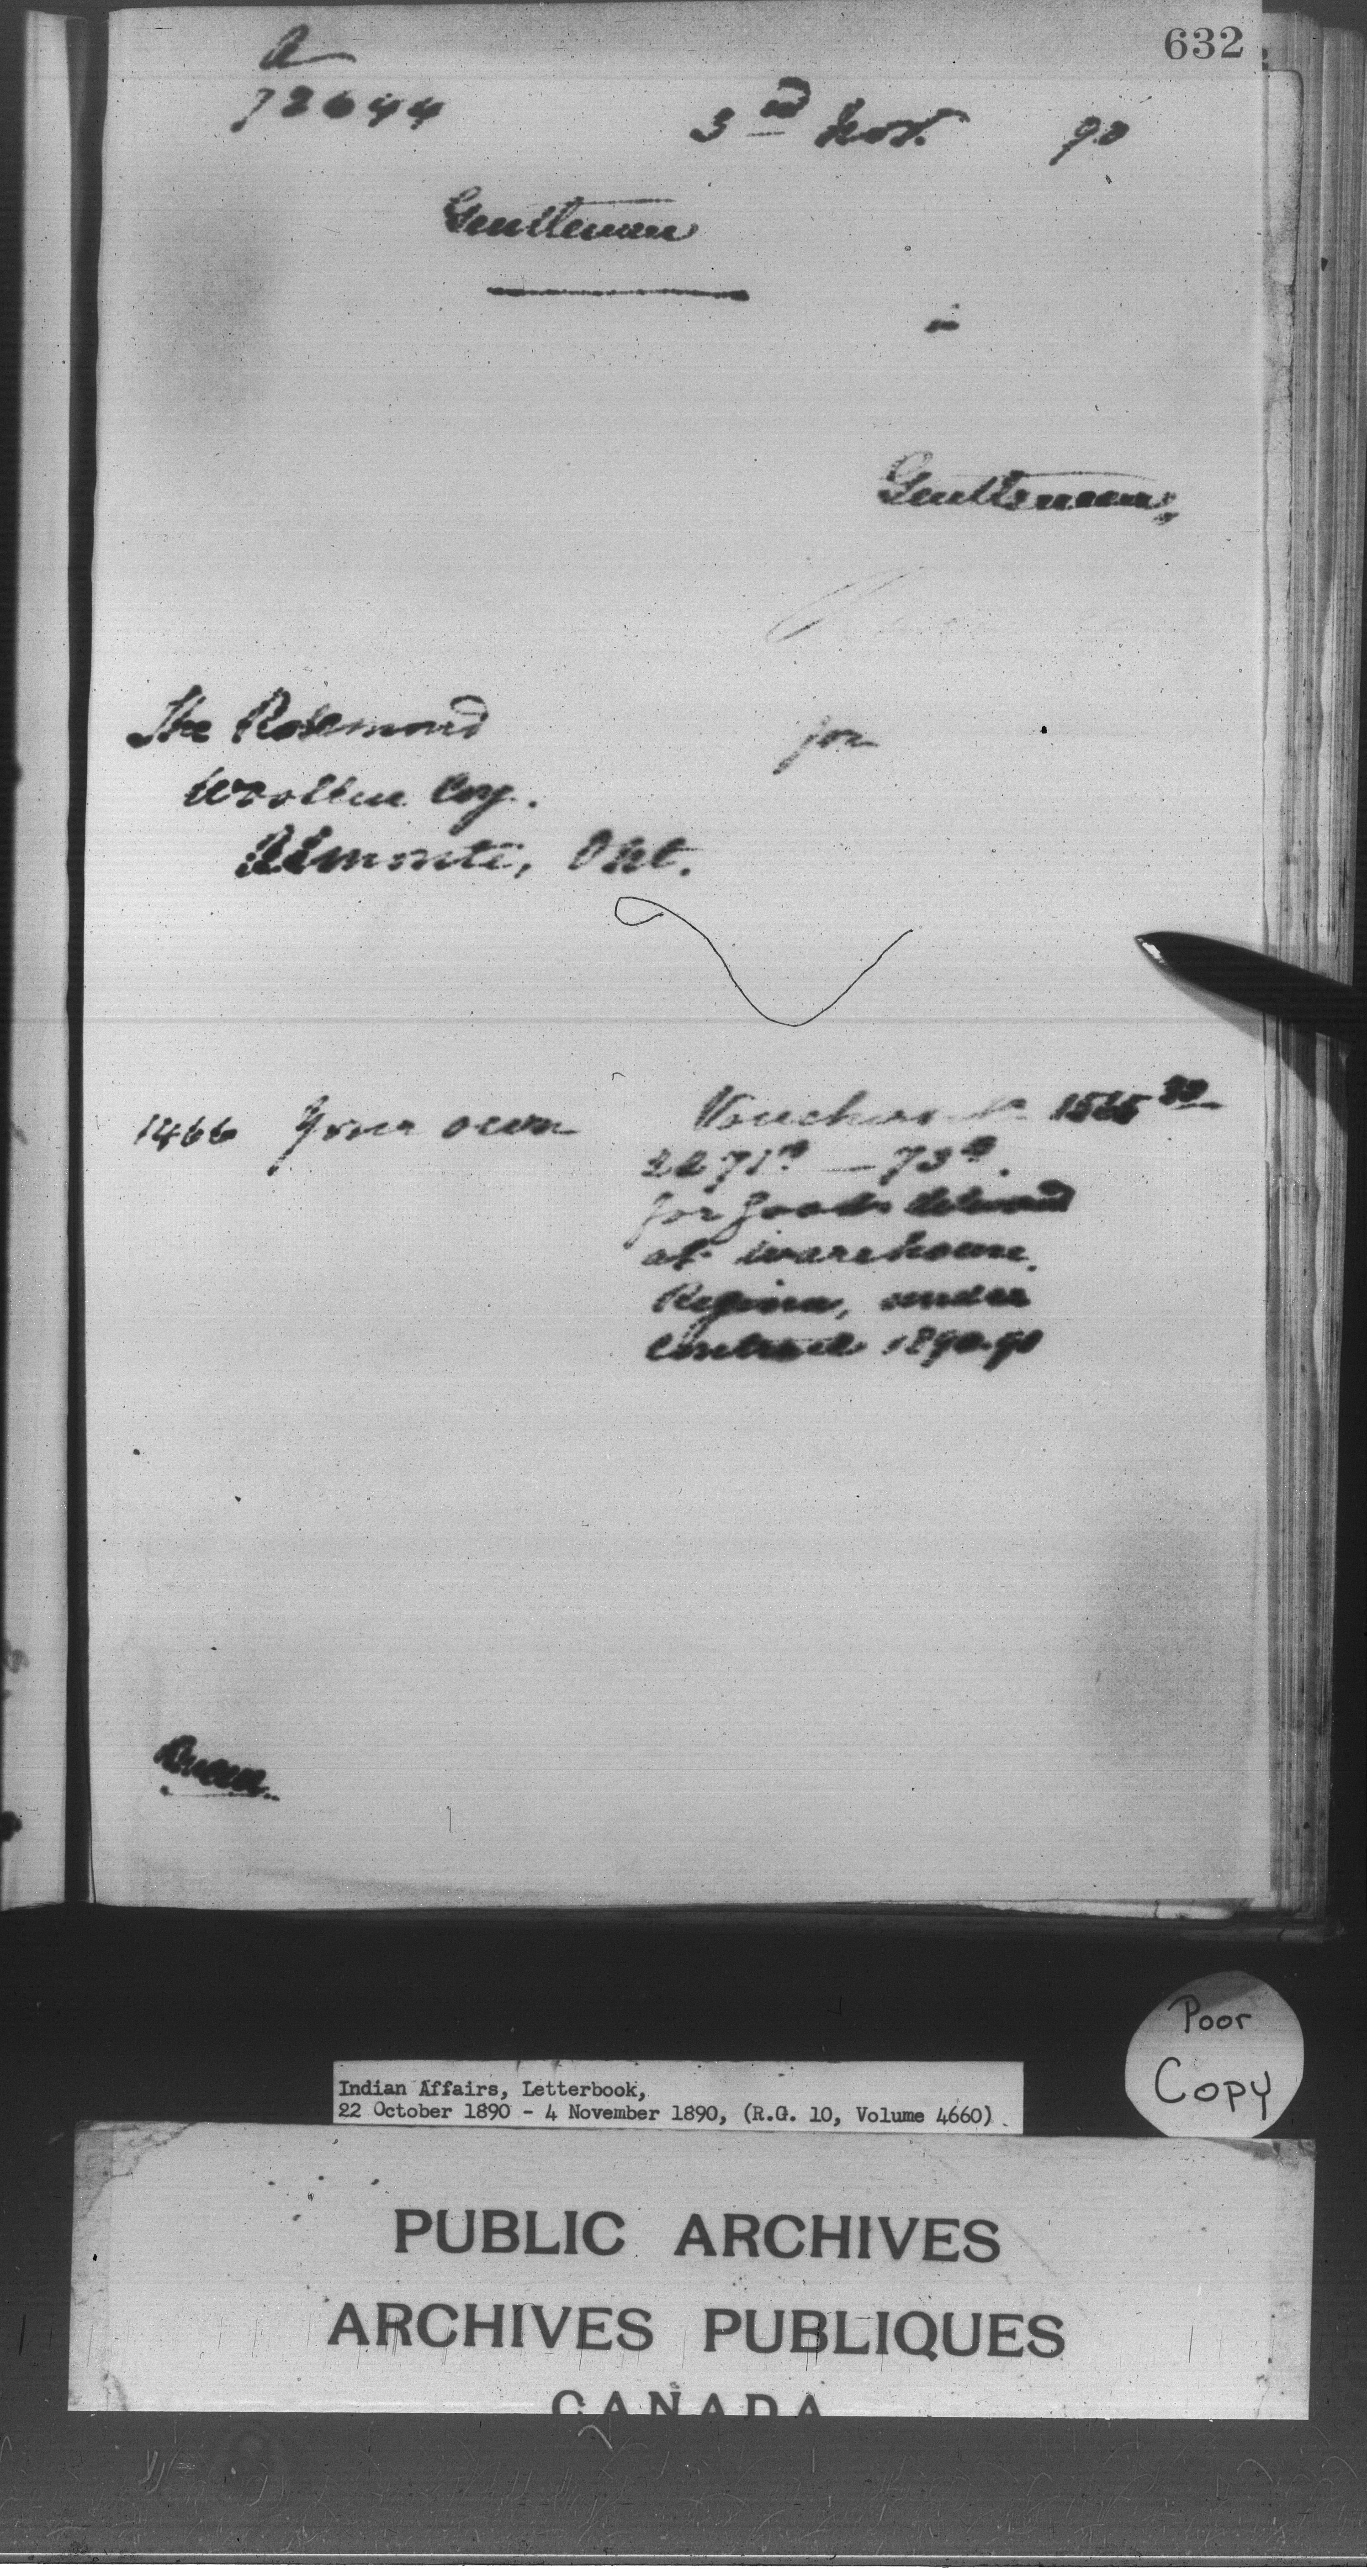 632
A
72644
3rd Nov. 90
Gentlemen
in
Gentlemen,
The Rosamond
for
Woollen Coy.
Almonte, Ont.
1466 Your own Vouchers 1565 30
2271a — 73a.
for goods delivered
at warehouse,
Regina, under
Contract 1890.90
Poor
Copy
Indian Affairs, Letterbook,
22 October 1890 - 4 November 1890, (R.G. 10, Volume 4660)
PUBLIC ARCHIVES
ARCHIVES PUBLIQUES
CANADA